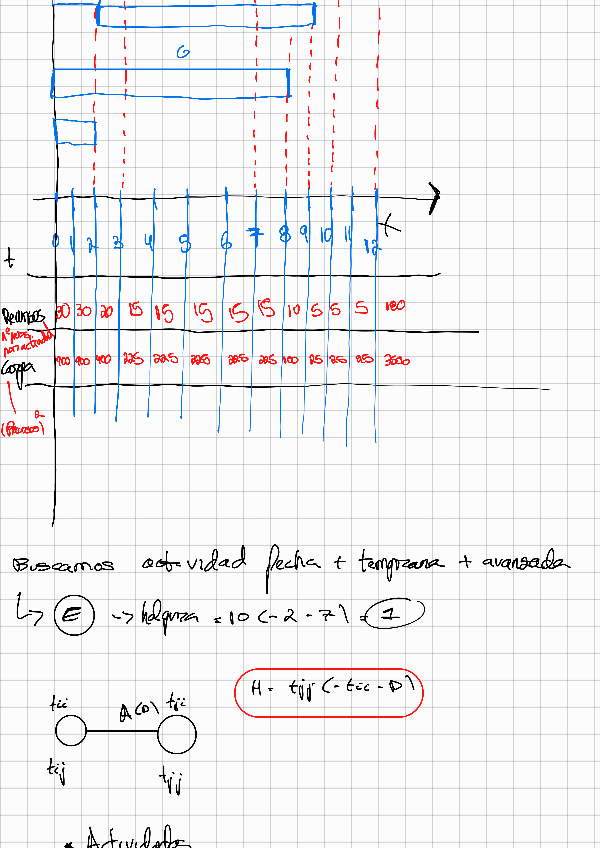 G
0 1 2 3 4 5 6 7 8 9 10 11 12
t
Recursos 30 30 20 15 15 15 15 15 10 5 5 5 180
Carga 900 900 400 225 225 225 225 225 100 25 25 25 3600
(Recursos)²
Buscamos actividad fecha + temprana + avanzada
↳ E -> holgura = 10 (-2 - 7) = 1
H = tjj (- tii - D)
tii A(D) tji
tij tjj
• Actividades